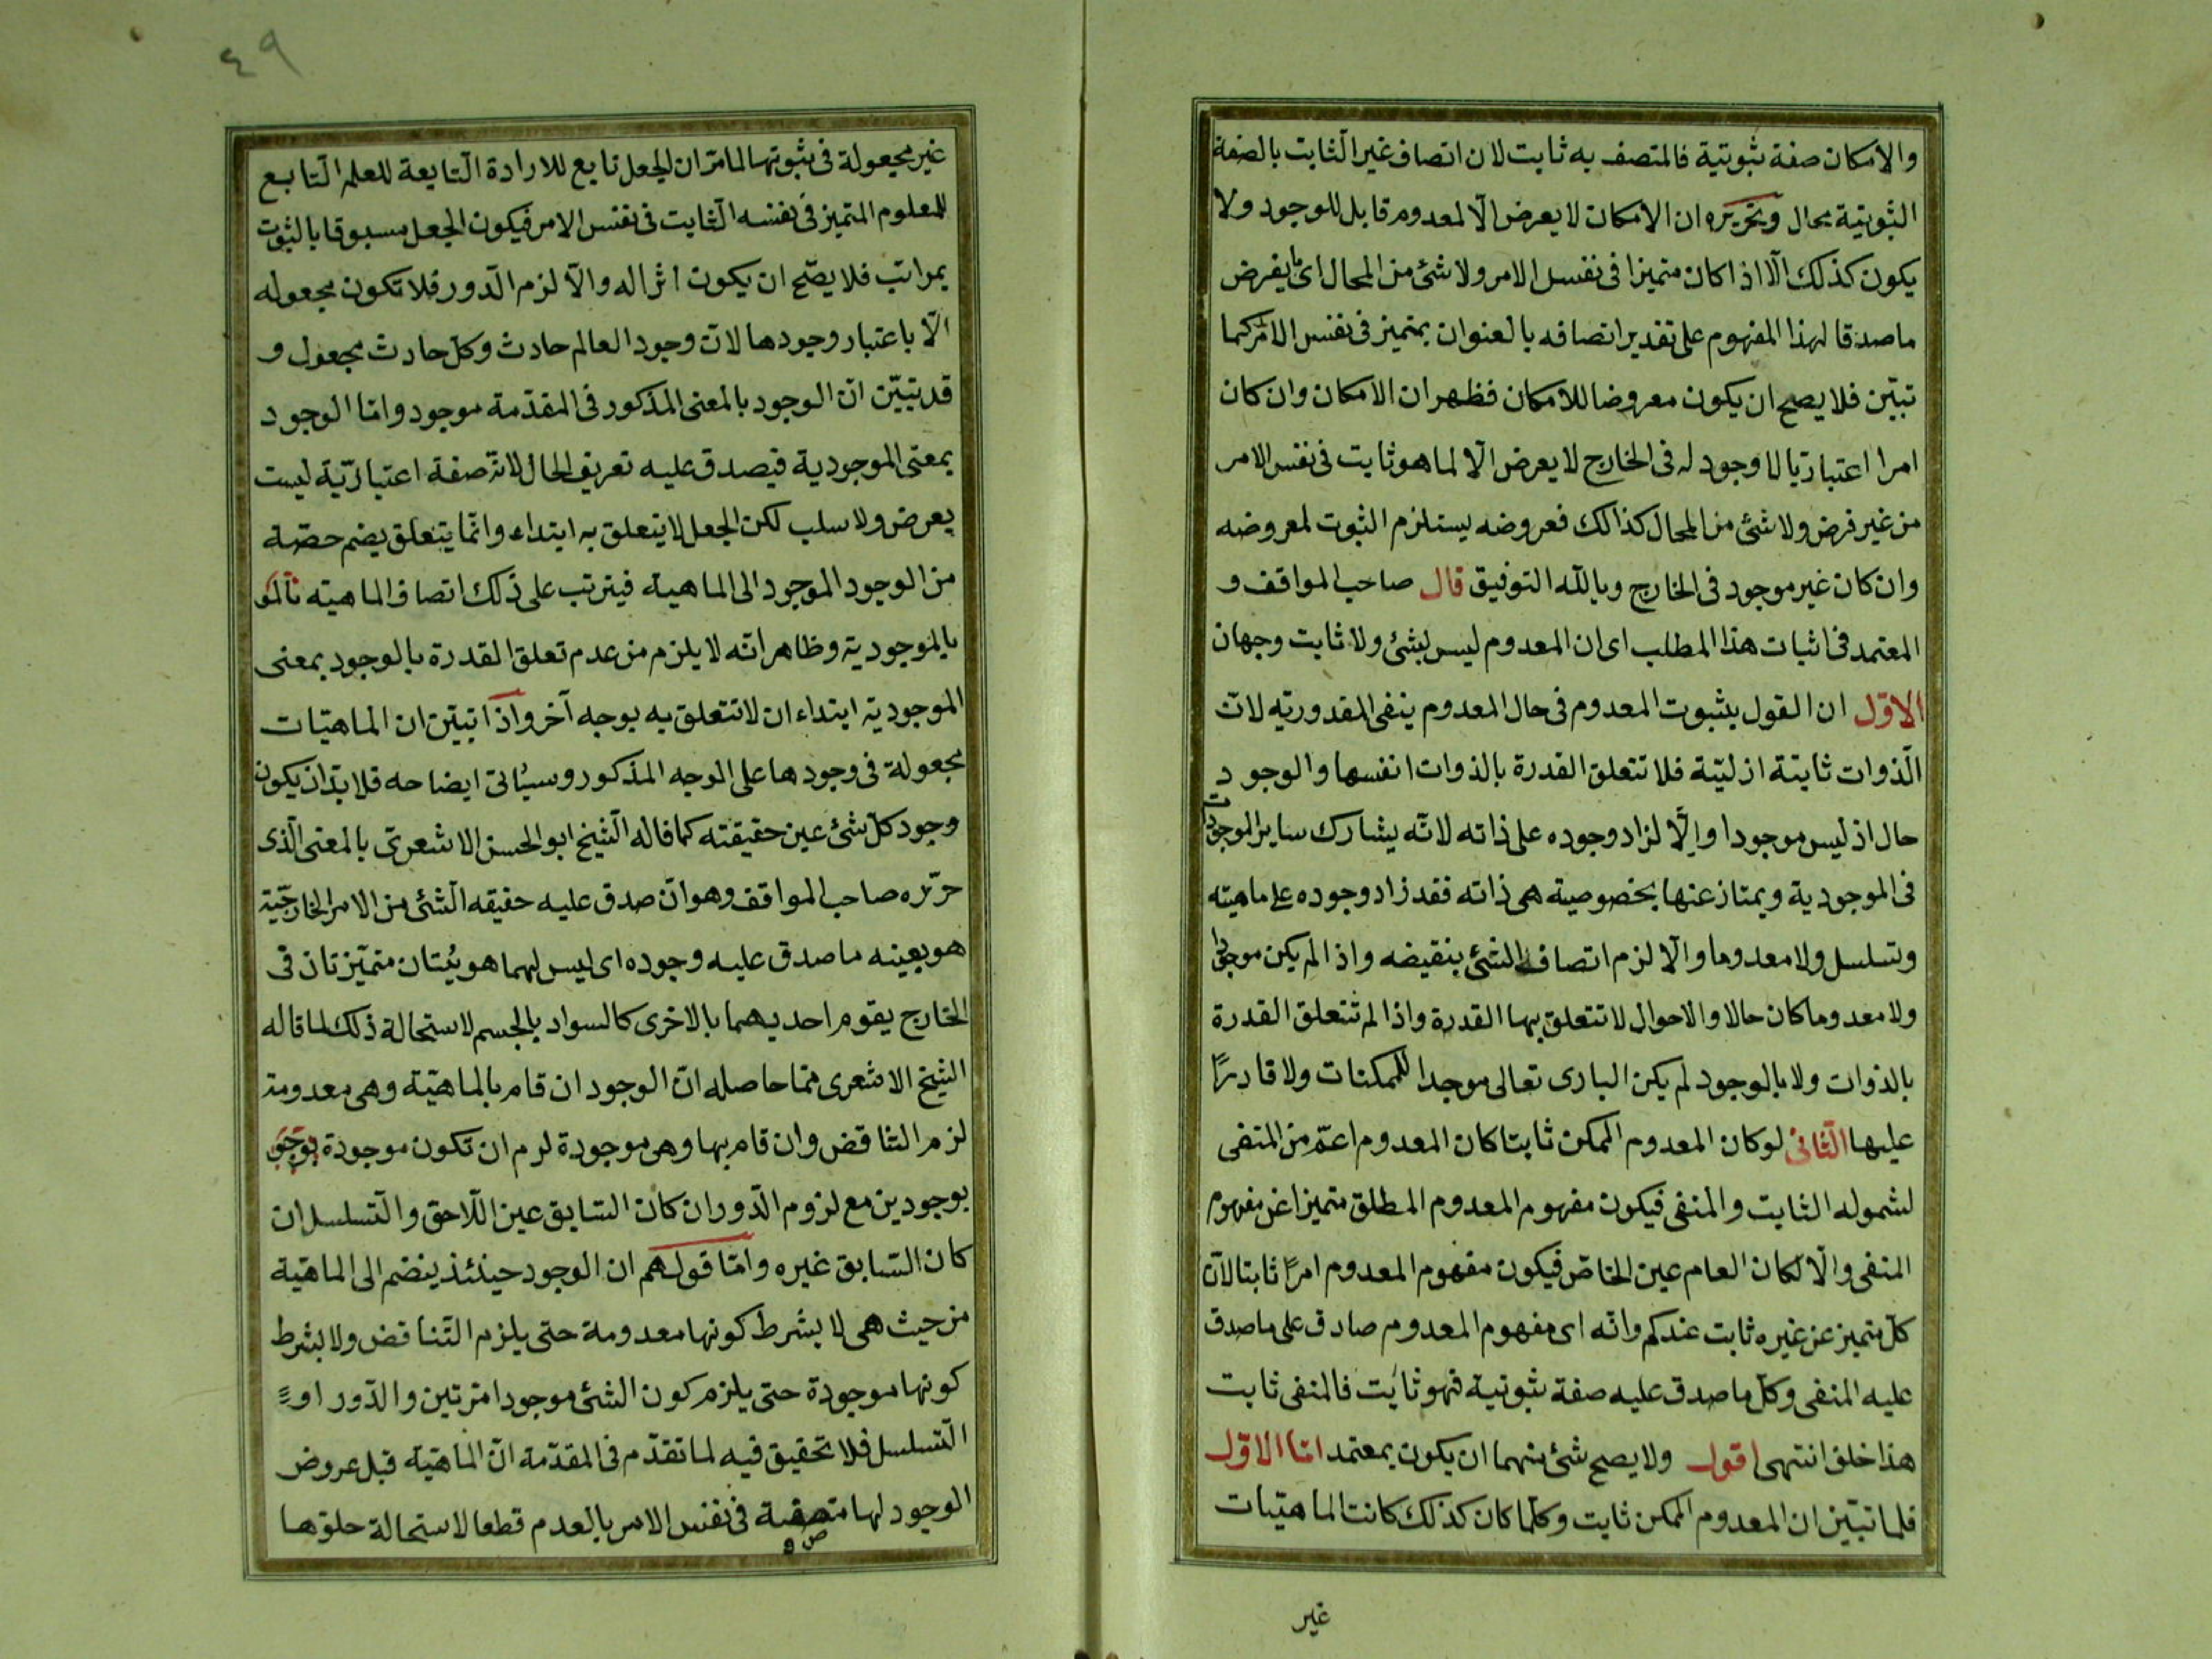 والامكان صفة ثبوتية فالمتصف به ثابت لان اتصاف غير الثابت بالصفة
الثبوتية محال وتحريره ان الامكان لا يعرض الا لمعدوم قابل للوجود ولا
يكون كذلك الا اذا كان متميزا فى نفس الامر ولا شئ من المحال اى ما يفرض
ماصدقا لهذا المفهوم على تقدير اتصافه بالعنوان بمتميز فى نفس الامر كما
تبيّن فلا يصح ان يكون معروضا للامكان فظهر ان الامكان وان كان
امرا اعتباريّا لا وجود له فى الخارج لا يعرض الا لما هو ثابت فى نفس الامر
من غير فرض ولا شئ من المحال كذالك فعروضه يستلزم الثبوت لمعروضه
وان كان غير موجود فى الخارج وبالله التوفيق قال صاحب المواقف و
المعتمد فى اثبات هذا المطلب اى ان المعدوم ليس بشئ ولا ثابت وجهان
الاوّل ان القول بثبوت المعدوم فى حال المعدوم ينفى المقدوريّه لانّ
الّذوات ثابتة ازليّة فلا تتعلق القدرة بالذوات انفسها والوجود
حال اذ ليس موجودا والّا لزاد وجوده على ذاته لانّه يشارك ساير الموجودات
فى الموجودية ويمتاز عنها بخصوصية هى ذاته فقد زاد وجوده على ماهيته
وتسلسل ولا معدوما والّا لزم اتصاف الشئ بنقيضه واذا لم يكن موجودا
ولا معدوما كان حالا والاحوال لا تتعلق بها القدرة واذا لم تتعلق القدرة
بالذوات ولا بالوجود لم يكن البارى تعالى موجدا للممكنات ولا قادرًا
عليها الثانى لو كان المعدوم الممكن ثابتا كان المعدوم اعمّ من المنفى
لشموله الثابت والمنفى فيكون مفهوم المعدوم المطلق متميزا عن مفهوم
المنفى والّا لكان العام عين الخاصّ فيكون مفهوم المعدوم امرًا ثابتا لانّ
كلّ متميز عن غيره ثابت عندكم وانّه اى مفهوم المعدوم صادق على ما صدق
عليه المنفى وكلّ ما صدق عليه صفة ثبوتية فهو ثابت فالمنفى ثابت
هذا خلق انتهى اقول ولا يصح شئ منهما ان يكون بمعتمد امّا الاوّل
فلما تبيّن ان المعدوم الممكن ثابت وكلّما كان كذلك كانت الماهيّات
غير
٤٩
غير مجعولة فى ثبوتها لما مرّ ان الجعل تابع للارادة التابعة للعلم التابع
للمعلوم المتميز فى نفسه الثابت فى نفس الامر فيكون الجعل مسبوقا بالثبوت
بمراتب فلا يصّح ان يكون اثرا له والّا لزم الدّور فلا تكون مجعوله
الّا باعتبار وجودها لانّ وجود العالم حادث وكلّ حادث مجعول و
قد تبيّن انّ الوجود بالمعنى المذكور فى المقدّمة موجود وامّا الوجود
بمعنى الموجودية فيصدق عليه تعريف الحال لانّه صفة اعتباريّة ليست
بعرض ولا سلب لكن الجعل لا يتعلق به ابتداء وانّما يتعلق بضم حصّة
من الوجود الموجود الى الماهية فيترتب على ذلك اتصاف الماهيته
بالموجودية وظاهر انّه لا يلزم من عدم تعلق القدرة بالوجود بمعنى
الموجودية ابتداء ان لا تتعلق به بوجه آخر واذا تبيّن ان الماهيّات
مجعولة فى وجودها على الوجه المذكور وسيأتى ايضاحه فلا بدّ ان يكون
وجود كلّ شئ عين حقيقته كما قاله الشيخ ابو الحسن الاشعرىّ بالمعنى الّذى
حرّره صاحب المواقف وهو انّ صدق عليه حقيقه الشّئ من الامر الخارجيّة
هو بعينه ما صدق عليه وجوده اى ليس لهما هويّتان متميّزتان فى
الخارج يقوم احديهما بالاخرى كالسواد بالجسم لاستحالة ذلك لما قاله
الشيخ الاشعرى ممّا حاصله انّ الوجود ان قام بالماهيّة وهى معدومة
لزم التناقض وان قام بها وهى موجودة لزم ان تكون موجودة
بوجودين مع لزوم الدّور ان كان السّابق عين اللّاحق والتّسلسل ان
كان السّابق غيره وامّا قولهم ان الوجود حينئذ ينضم الى الماهيّة
من حيث هى لا بشرط كونها معدومة حتى يلزم التّناقض ولا بشرط
كونها موجودة حتى يلزم كون الشئ موجودا مرّتين والدّور او
التّسلسل فلا تحقيق فيه لما تقدّم فى المقدّمة انّ الماهيّة قبل عروض
الوجود لها متصفة فى نفس الامر بالعدم قطعا لاستحالة خلوّها